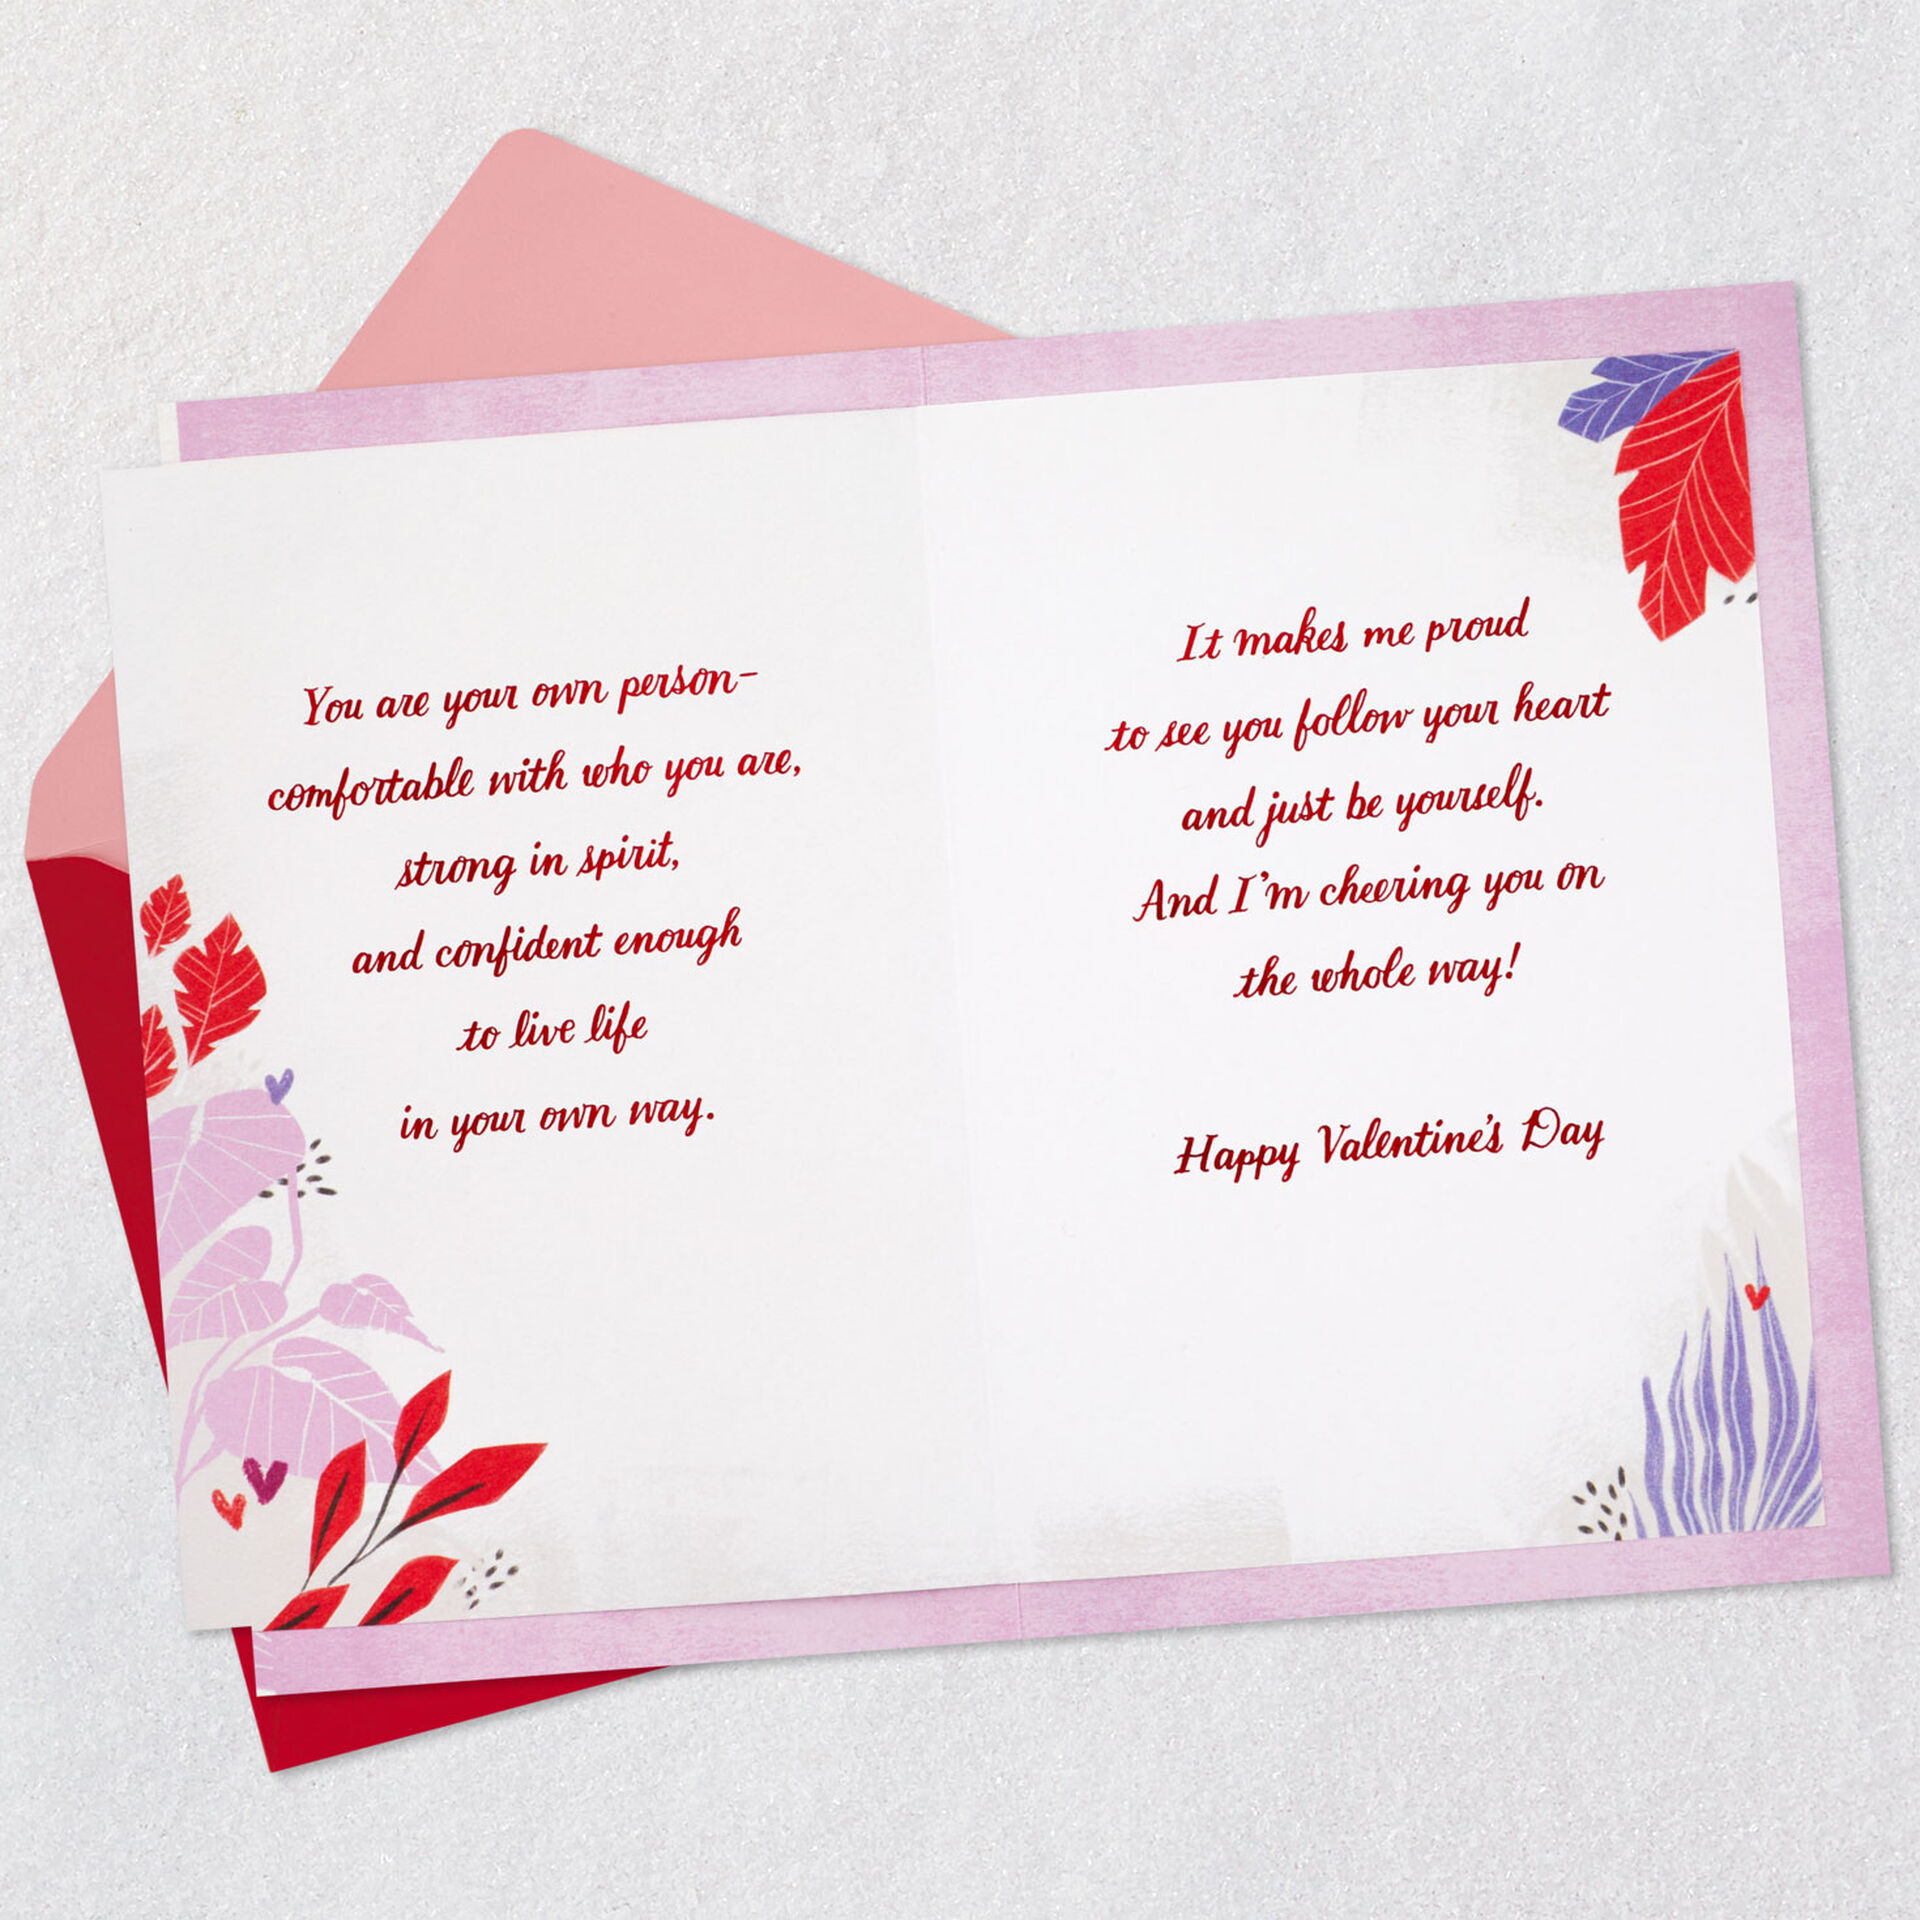 You are your own person–
comfortable with who you are,
strong in spirit,
and confident enough
to live life
in your own way.
It makes me proud
to see you follow your heart
and just be yourself.
And I'm cheering you on
the whole way!
Happy Valentine's Day